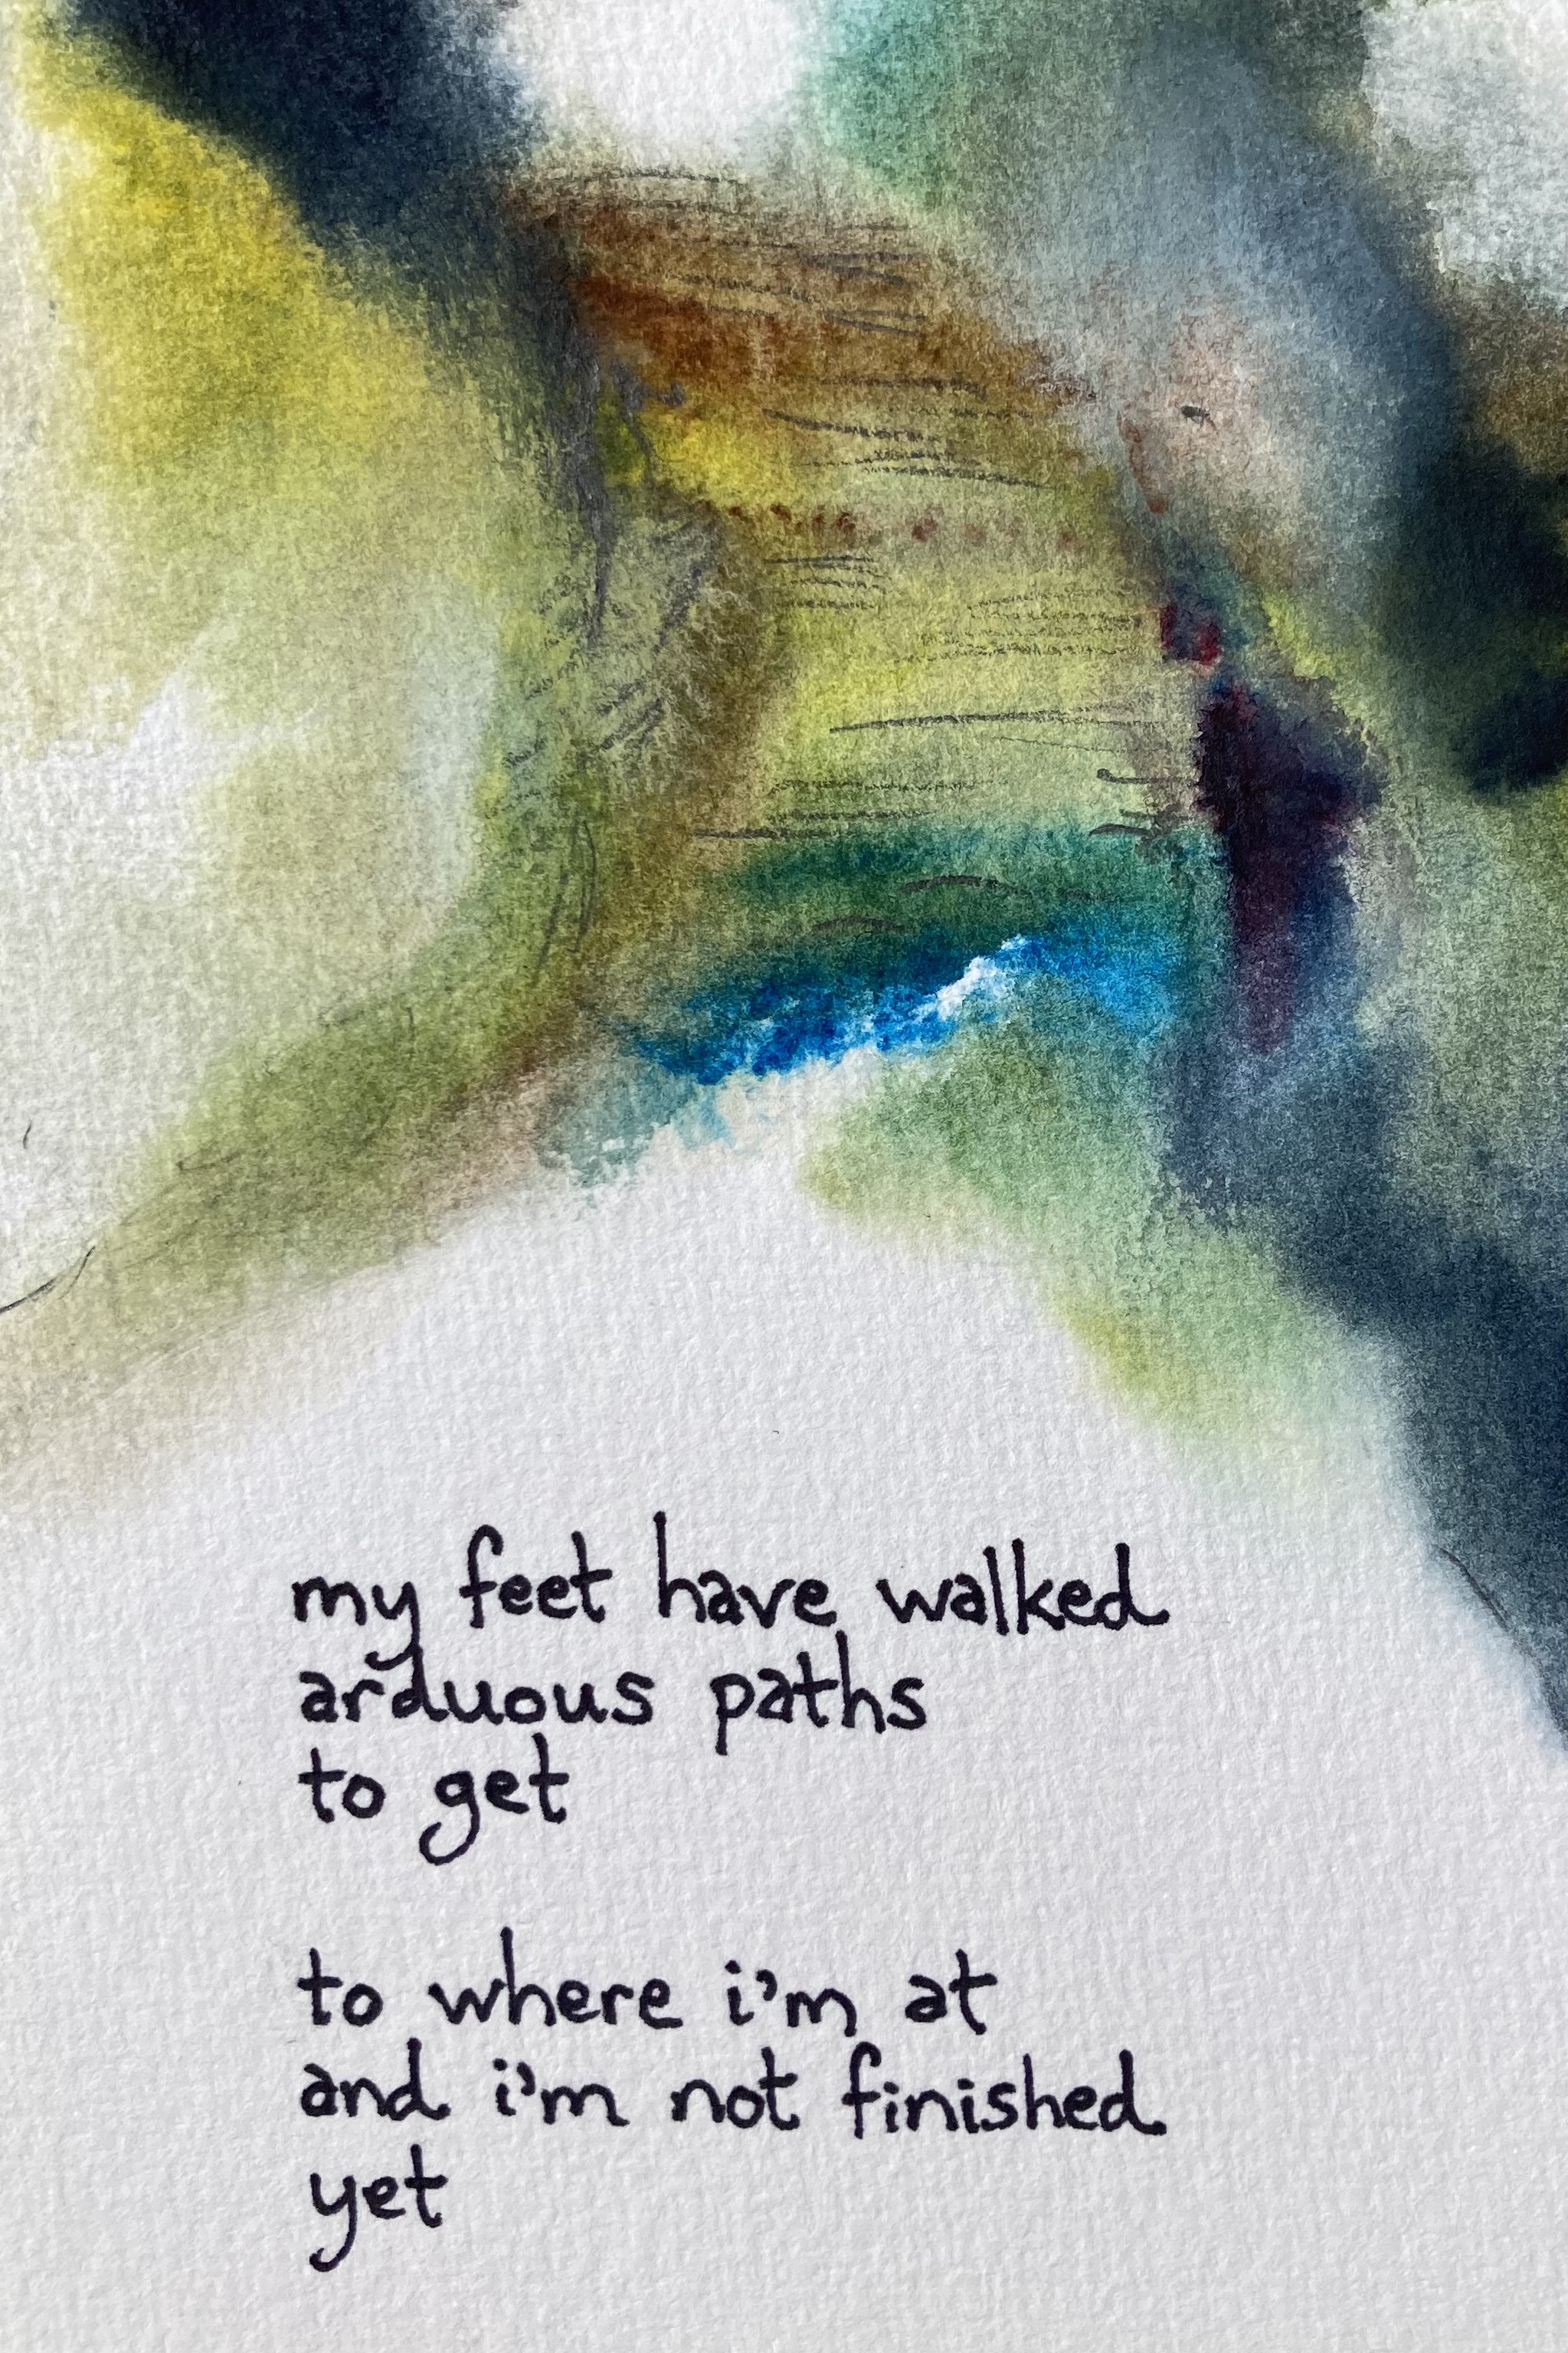 my feet have walked
arduous paths
to get
to where i'm at
and i'm not finished
yet